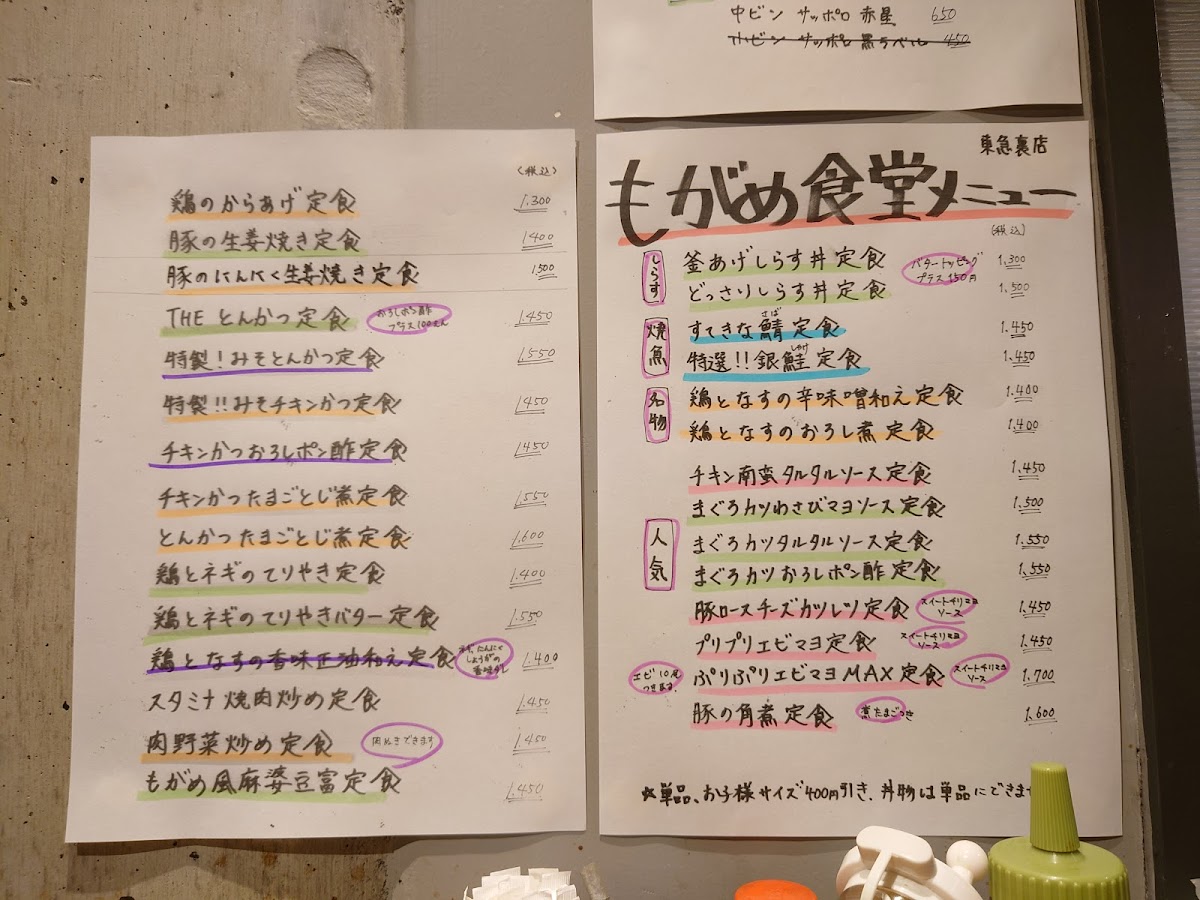 中ビン サッポロ 赤星 650
小ビン サッポロ 黒ラベル 450
(税込)
鶏のからあげ定食 1.300
豚の生姜焼き定食 1400
豚のにんにく生姜焼き定食 1.500
THE とんかつ定食 おろしポン酢 プラス100えん 1.450
特製!みそとんかつ定食 1.550
特製!!みそチキンかつ定食 1450
チキンかつおろしポン酢定食 1.450
チキンかつたまごとじ煮定食 1.550
とんかつたまごとじ煮定食 1.600
鶏とネギのてりやき定食 1.400
鶏とネギのてりやきバター定食 1.550
鶏となすの香味正油和え定食 しょうがの 1.400
スタミナ焼肉炒め定食 1.450
肉野菜炒め定食 肉ぬきできます 1.450
もがめ風麻婆豆富定食 1.450
東急裏店
もがめ食堂メニュー
(税込)
しらす
釜あげしらす丼定食 バタートッピング プラス150円 1.300
どっさりしらす丼定食 1.500
焼魚
すてきな鯖定食 さば 1.450
特選!!銀鮭定食 しゃけ 1.450
名物
鶏となすの辛味噌和え定食 1.400
鶏となすのおろし煮定食 1.400
チキン南蛮タルタルソース定食 1.450
まぐろカツわさびマヨソース定食 1.500
人気
まぐろカツタルタルソース定食 1.550
まぐろカツおろしポン酢定食 1.550
豚ロースチーズカツレツ定食 スイートチリマヨ ソース 1.450
プリプリエビマヨ定食 スイートチリマヨ ソース 1.450
エビ10尾
ぷりぷりエビマヨMAX定食 スイートチリマヨ ソース 1.700
豚の角煮定食 煮たまごつき 1.600
☆単品、お子様サイズ400円引き、丼物は単品にできませ